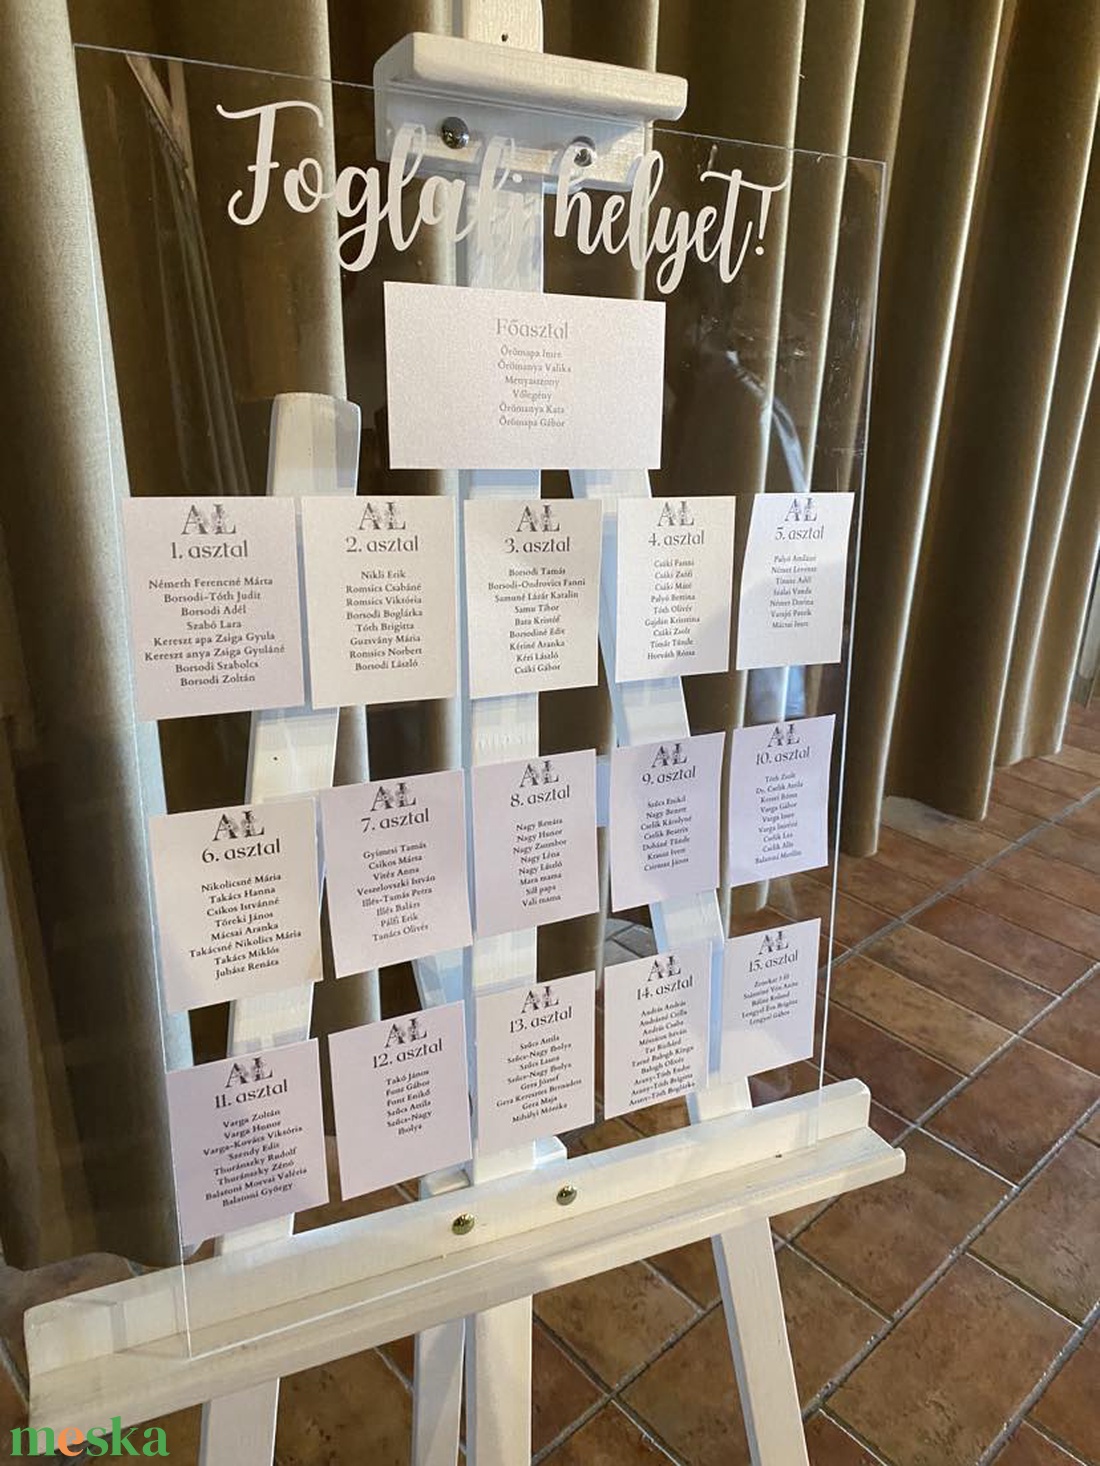 Foglalj helyet!
Főasztal
Örömapa Imre
Örömanya Valika
Menyasszony
Vőlegény
Örömanya Kata
Örömapa Gábor
AL
1. asztal
Németh Ferencné Márta
Borsodi-Tóth Judit
Borsodi Adél
Szabó Lara
Kereszt apa Zsiga Gyula
Kereszt anya Zsiga Gyuláné
Borsodi Szabolcs
Borsodi Zoltán
AL
2. asztal
Nikli Erik
Romsics Csabáné
Romsics Viktória
Borsodi Boglárka
Tóth Brigitta
Guzsvány Mária
Romsics Norbert
Borsodi László
AL
3. asztal
Borsodi Tamás
Borsodi-Ondrovics Fanni
Samuné Lázár Katalin
Samu Tibor
Bata Kristóf
Borsodiné Edit
Kériné Aranka
Kéri László
Csáki Gábor
AL
4. asztal
Csáki Fanni
Csáki Zsófi
Csáki Máté
Palyó Bettina
Tóth Olivér
Gajdán Krisztina
Csáki Zsolt
Tímár Tünde
Horváth Rózsa
AL
5. asztal
Német Levente
Szalai Vanda
Német Dorina
Varajó Patrik
Mácsai Imre
AL
6. asztal
Nikolicsné Mária
Takács Hanna
Csikos Istvánné
Töreki János
Mácsai Aranka
Takácsné Nikolics Mária
Takács Miklós
Juhász Renáta
AL
7. asztal
Gyimesi Tamás
Csikos Márta
Vitéz Anna
Veszelovszki István
Illés-Tamás Petra
Illés Balázs
Pálfi Erik
Tanács Olivér
AL
8. asztal
Nagy Renáta
Nagy Hunor
Nagy Zsombor
Nagy Léna
Nagy László
Mara mama
Sili papa
Vali mama
AL
9. asztal
Szűcs Enikő
Nagy Benett
Cselik Károlyné
Cselik Beatrix
Dobáné Tünde
Krausz Ivett
AL
10. asztal
Tóth Zsolt
Dr. Cselik Attila
Varga Gábor
Varga Imre
Varga Imréné
Cselik Lea
AL
11. asztal
Varga Zoltán
Varga Hunor
Varga-Kovács Viktória
Szendy Edit
Thuránszky Rudolf
Thuránszky Zénó
Balatoni Morvai Valéria
Balatoni György
AL
12. asztal
Takó János
Font Gábor
Font Enikő
Szűcs Attila
Szűcs-Nagy
Ibolya
AL
13. asztal
Szűcs Attila
Szűcs-Nagy Ibolya
Szűcs Laura
Szűcs-Nagy Ibolya
Gera József
Gera Keresztes Bernadett
Gera Maja
Mihályi Mónika
AL
14. asztal
András András
Andrásné Csilla
András Csaba
Mészáros István
Tar Richárd
Tarné Balogh Kinga
Balogh Olivér
Arany-Tóth Endre
Arany-Tóth Brigitta
Arany-Tóth Boglárka
AL
15. asztal
Zenekar 3 fő
Bálint Roland
Lengyel Éva Brigitta
Lengyel Gábor
meska